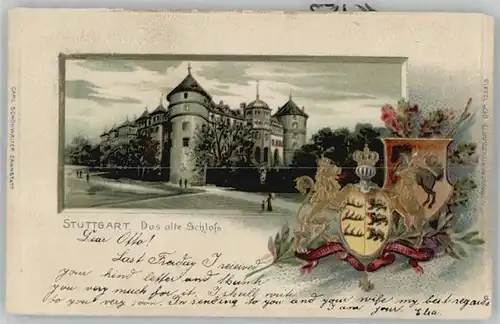 CARL SCHÖNWALTER CANNSTATT
STUTTGART. Das alte Schloß.
Dear Otto!
Last Friday I received
your kind letter and thank
you very much for it. I shall write
to you very soon. In sending to you and your wife my best regards
I am your Elsa.